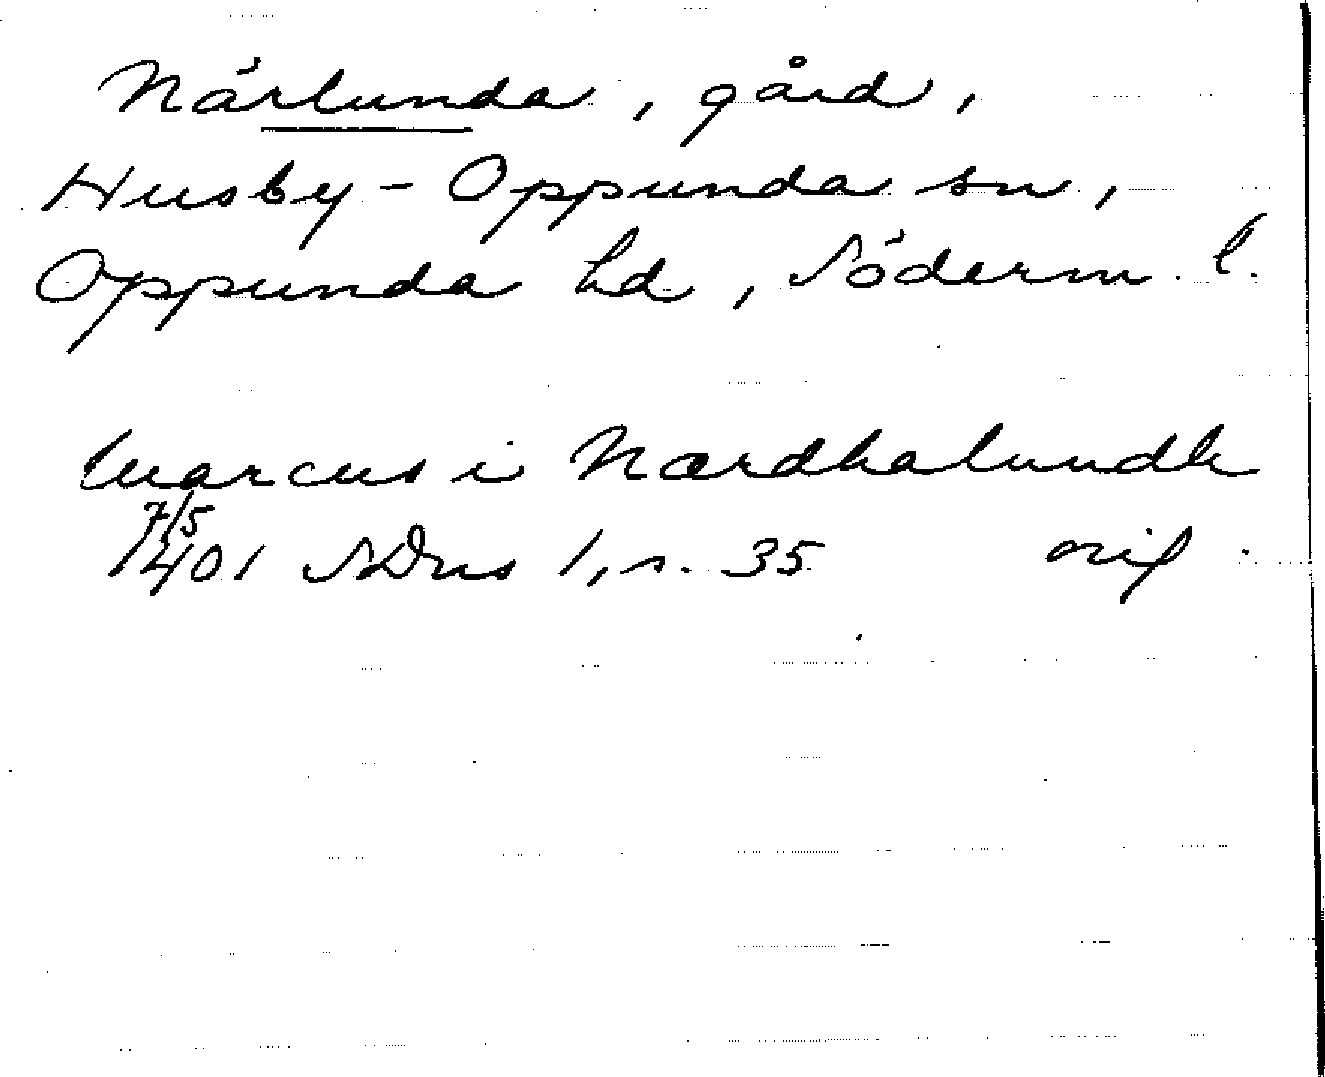 Närlunda, gård,
Husby-Oppunda sn,
Oppunda hd, Söderm. l.
marcus i Nærdhalundh
7/5
1401 SDns 1, s. 35 orig